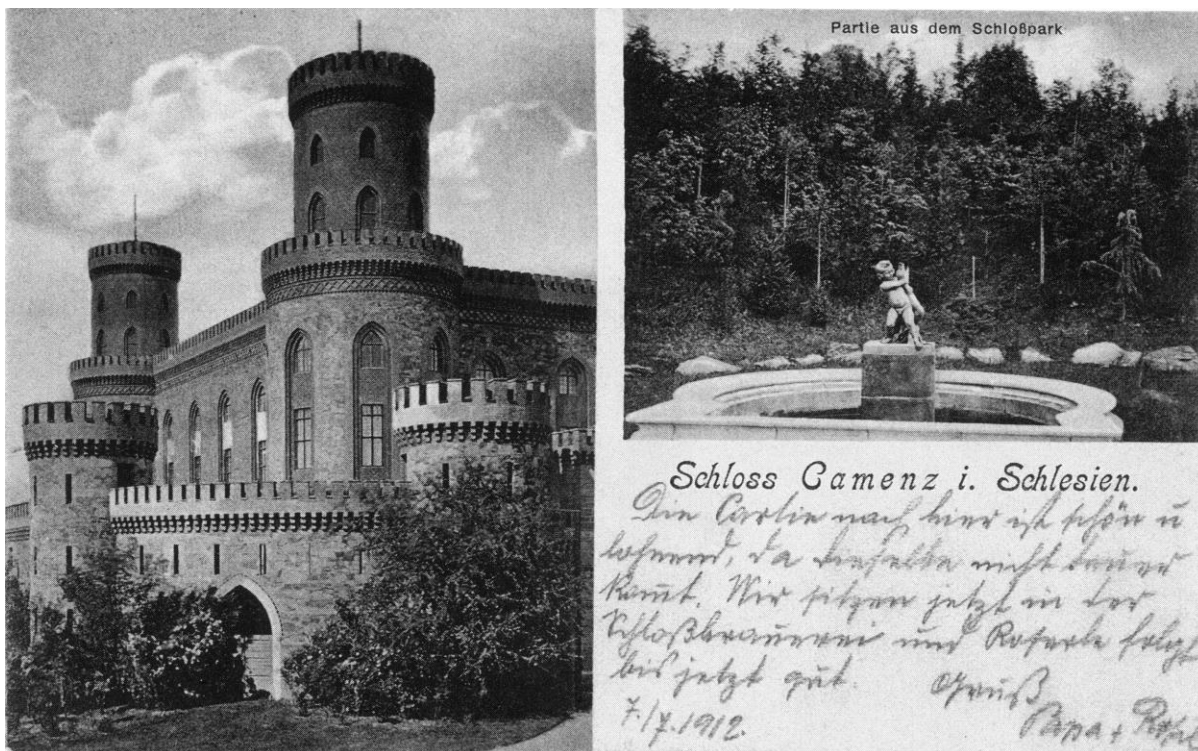 Partie aus dem Schloßpark
Schloss Camenz i. Schlesien.
Die Partie nach hier ist schön u
lohnend, da dieselbe nicht teuer
komt. Wir sitzen jetzt in der
Schloßbrauerei und Roserle folgt
bis jetzt gut. Gruß
7./7.1912. Papa +